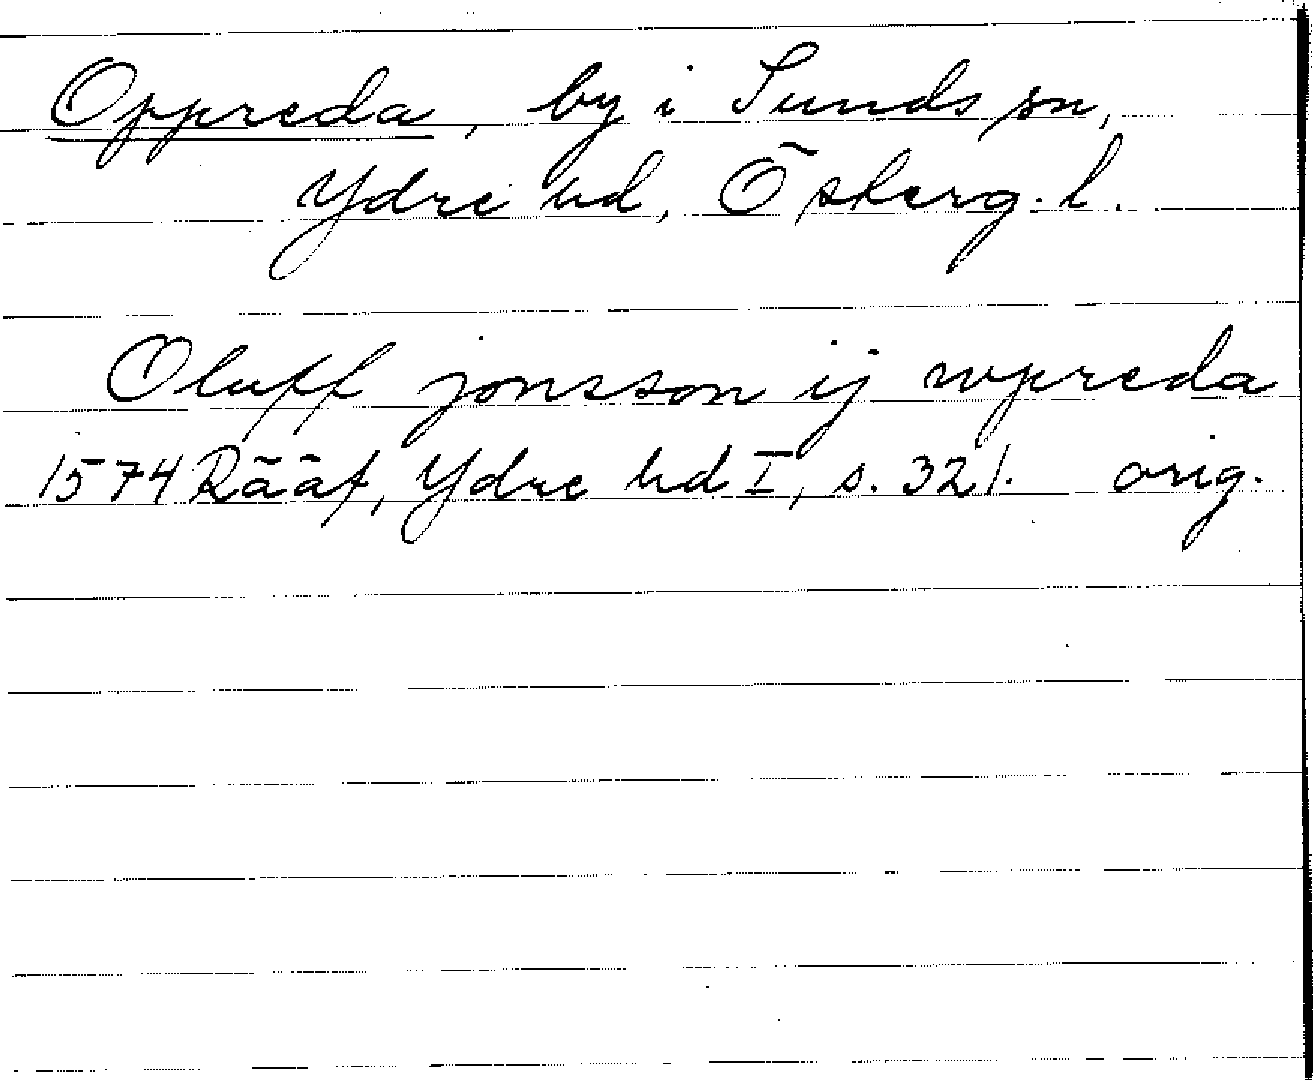 Oppreda, by i Sunds sn,
Ydre hd, Österg. l.
Oluff jonsson ij wpreda
1574 Rääf, Ydre hd I, s. 321. orig.